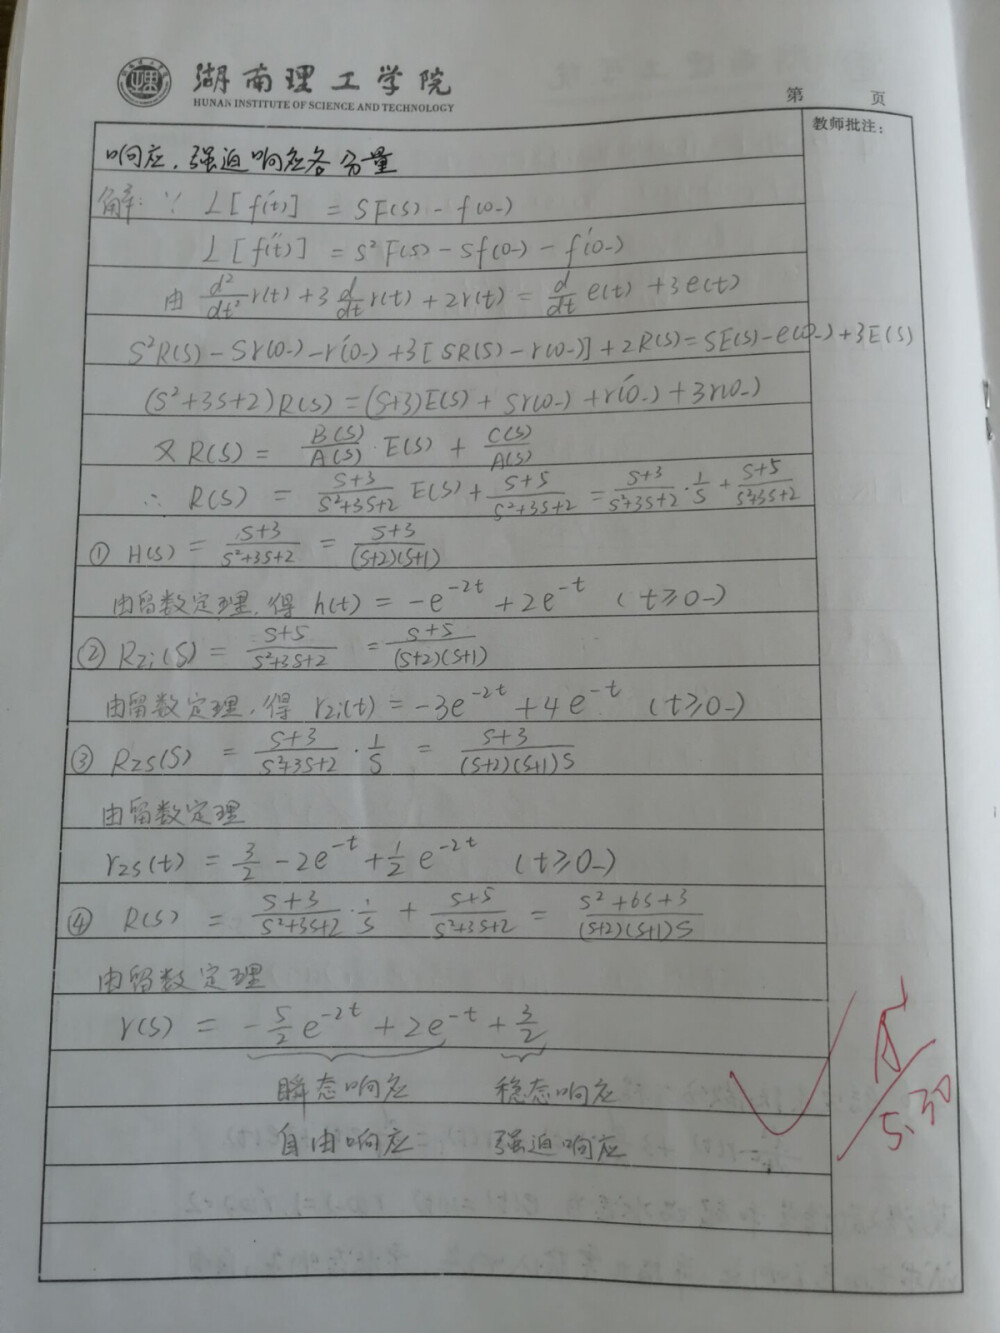 湖南理工学院
HUNAN INSTITUTE OF SCIENCE AND TECHNOLOGY
第 页
教师批注:
响应,强迫响应各分量
解: ∵ L[f'(t)] = SF(S) - f(0-)
L[f''(t)] = S²F(S) - Sf(0-) - f'(0-)
由 d²/dt² r(t) + 3 d/dt r(t) + 2r(t) = d/dt e(t) + 3e(t)
S²R(S) - Sr(0-) - r'(0-) + 3[SR(S) - r(0-)] + 2R(S) = SE(S) - e(0-) + 3E(S)
(S²+3S+2)R(S) = (S+3)E(S) + Sr(0-) + r'(0-) + 3r(0-)
又 R(S) = B(S)/A(S) · E(S) + C(S)/A(S)
∴ R(S) = S+3/S²+3S+2 E(S) + S+5/S²+3S+2 = S+3/S²+3S+2 · 1/S + S+5/S²+3S+2
① H(S) = S+3/S²+3S+2 = S+3/(S+2)(S+1)
由留数定理,得 h(t) = -e^-2t + 2e^-t (t≥0-)
② Rzi(S) = S+5/S²+3S+2 = S+5/(S+2)(S+1)
由留数定理,得 rzi(t) = -3e^-2t + 4e^-t (t≥0-)
③ Rzs(S) = S+3/S²+3S+2 · 1/S = S+3/(S+2)(S+1)S
由留数定理
rzs(t) = 3/2 - 2e^-t + 1/2 e^-2t (t≥0-)
④ R(S) = S+3/S²+3S+2 · 1/S + S+5/S²+3S+2 = S²+6S+3/(S+2)(S+1)S
由留数定理
r(S) = -5/2 e^-2t + 2e^-t + 3/2
瞬态响应 稳态响应
自由响应 强迫响应
5.30